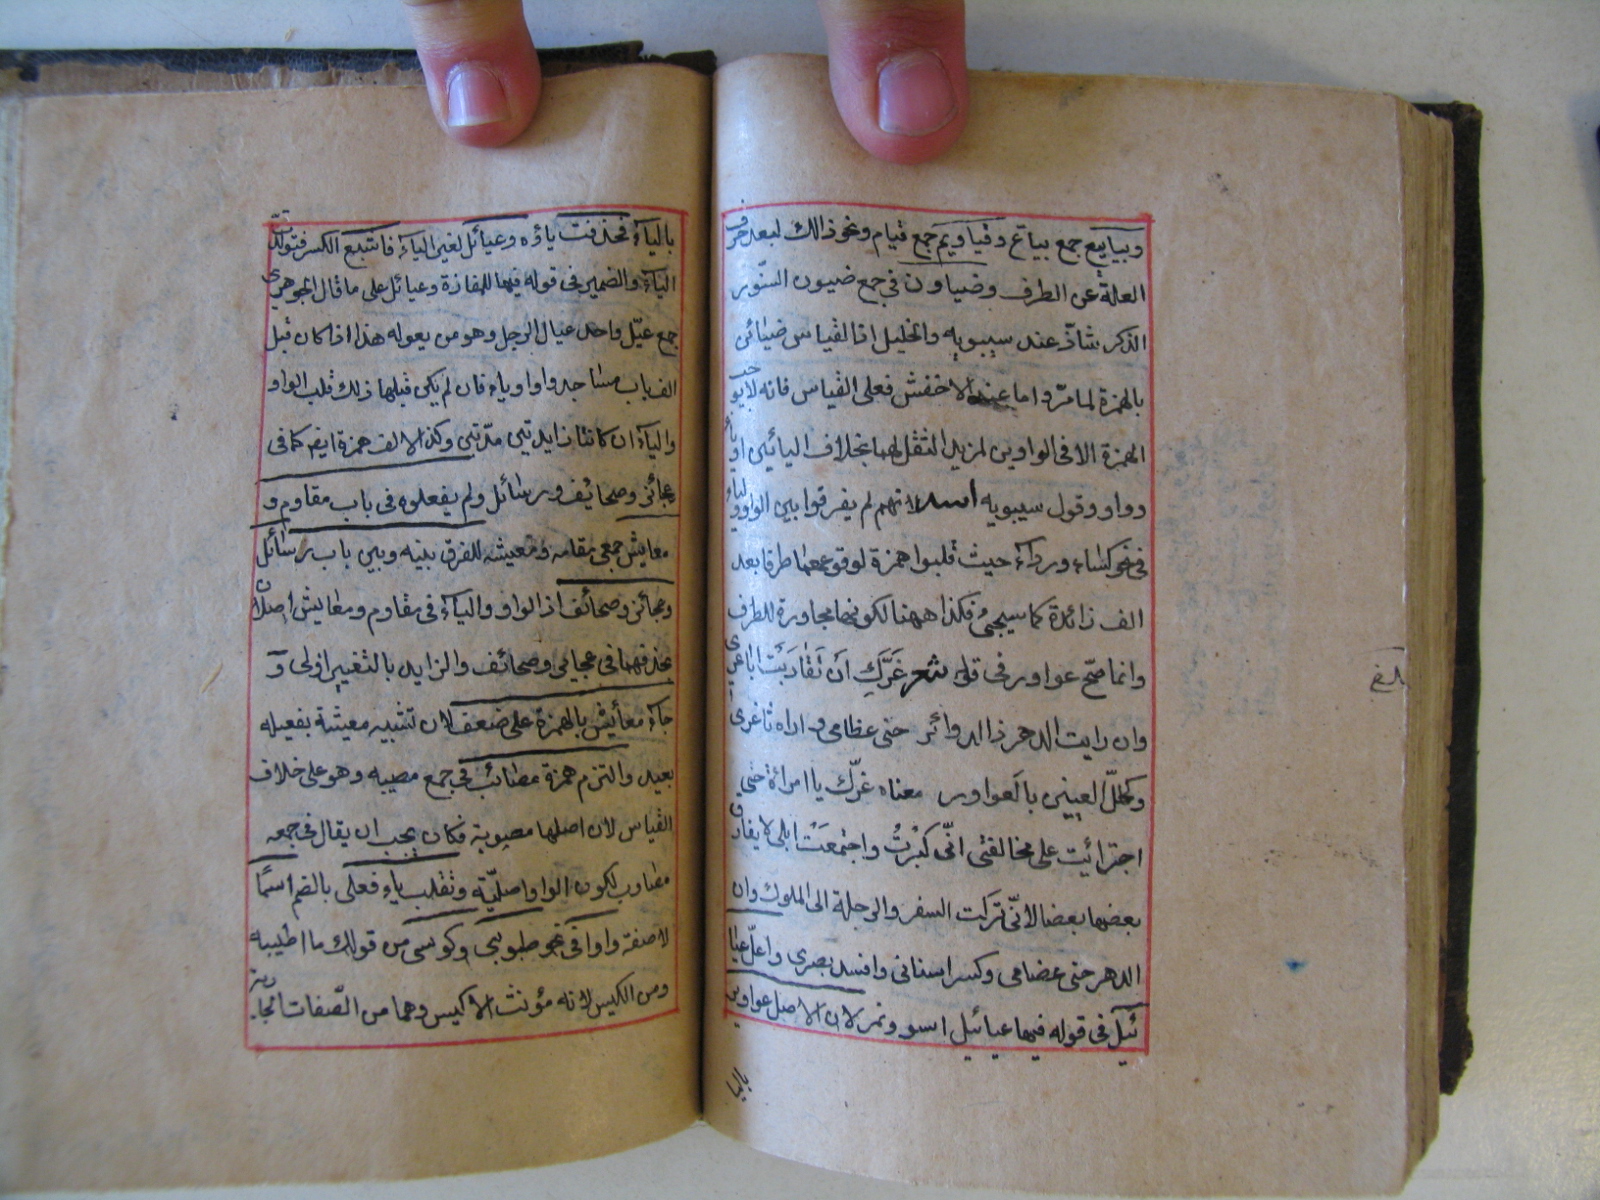 وبياييع جمع بياع وقياويم جمع قيام ونحو ذالك لبعد حرف
العلة عن الطرف وضياون في جمع ضيون السنّور
الذكر شاذّ عند سيبويه والخليل اذ القياس ضيائن
بالهمزة لما مرّ واما عند الاخفش فعلى القياس فانه لا يوجب
الهمزة الا في الواوين لمزيد الثقل لهما بخلاف اليائين او ياء
وواو وقول سيبويه اسد لانهم لم يفرقوا بين الواو والياء
في نحو كساء ورداء حيث قلبوا همزة لوقوعهما طرفا بعد
الف زائدة كما سيجئ فكذا ههنا لكونهما مجاورة للطرف
وانما صحّ عواور في قوله شعر غَرَّكِ اَن تَقارَبَت اباعري
وان رايت الدهر ذا الدوائر حنى عظامي واراه ثاغرى
وكحّل العينين بالعواور معناه غرّك يا امراة حتى
اجترائت على مخالفتى انّى كَبُرتُ واجتمعَتْ ابلى لا يفارق
بعضها بعضا لانّى تركت السفر والرحلة الى الملوك وان
الدهر حنى عضامى وكسر اسنانى وافسد بصرى واعلّ عيا
ئيل في قوله فيها عيائيل اسو ونمر لان الاصل عواوير
باليا
بالياء فحذفت ياؤه وعيائل لغير الياء فاشبع الكسر فتولّدت
الياء والضمير في قوله فيها للمفازة وعيائل على ما قال الجوهرى
جمع عيّل واحد عيال الرجل وهو من يعوله هذا اذا كان قبل
الف باب مساجد واو او ياء فان لم يكن قبلها ذلك قلب الواو
والياء ان كانتا زايدتين مدّتين وكذا الالف همزة ايضا كما في
عجائز وصحائف ورسائل ولم يفعلوه في باب مقاوم و
معايش جمعي مقامه ومعيشه للفرق بينه وبين باب رسائل
وعجائز وصحائف اذ الواو والياء في مقاوم ومعايش اصلان
بخلافهما في عجايز وصحائف والزايد بالتغيير اولى و
جاء معائش بالهمزة على ضعف لان تشبيه معيشة بفعيله
بعيد والتزم همزة مصائب في جمع مصيبه وهو على خلاف
القياس لان اصلها مصوبة فكان يجب ان يقال في جمعه
مصاوب لكون الواو اصليّة وتقلب ياء فعلى بالضم اسمًا
لا صفة واوا في نحو طوبى وكوسى من قولك ما اطيبه
ومن الكيس لانه مؤنث الاكيس وهما من الصّفات الجارية